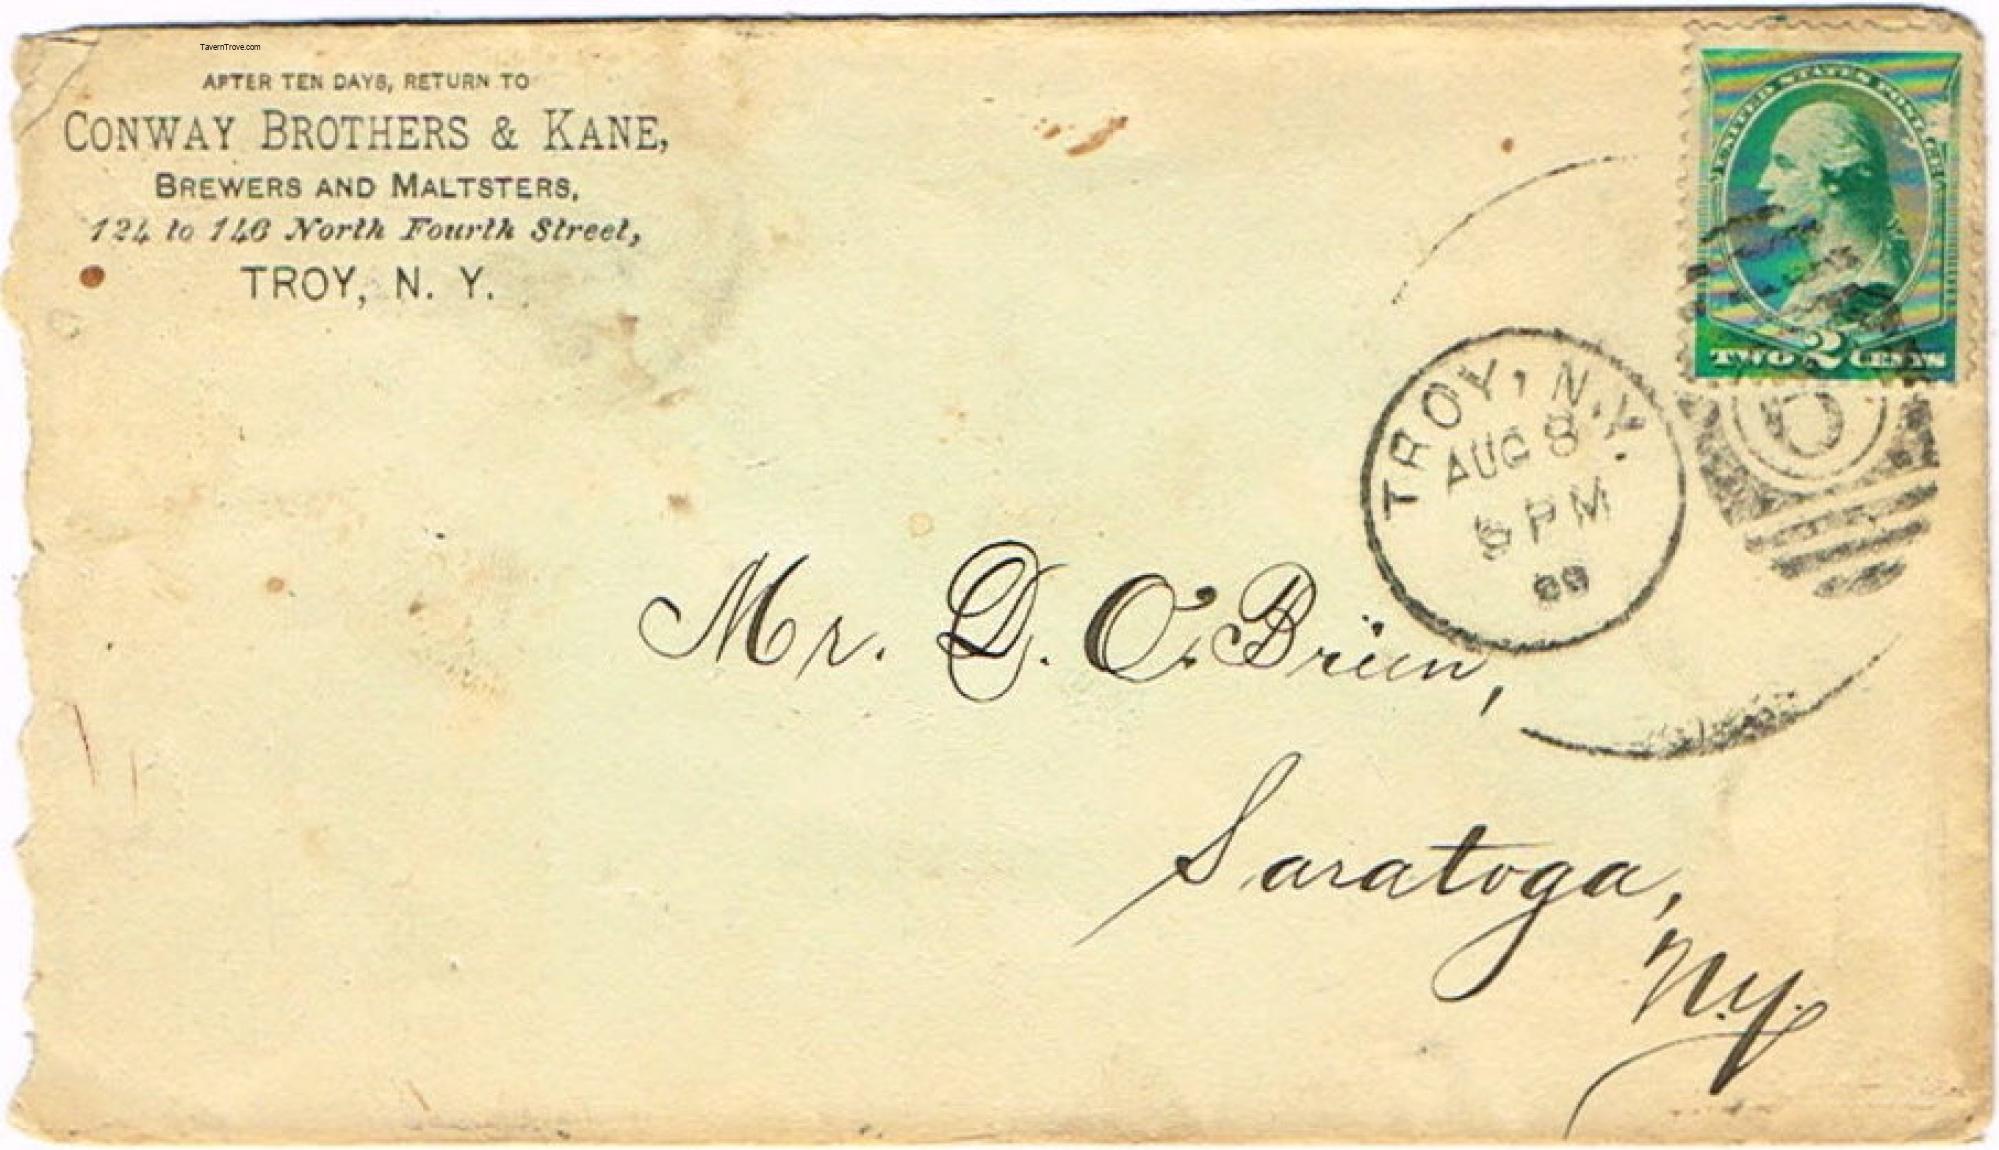 TavernTrove.com
AFTER TEN DAYS, RETURN TO
CONWAY BROTHERS & KANE,
BREWERS AND MALTSTERS,
124 to 146 North Fourth Street,
TROY, N. Y.
UNITED STATES POSTAGE
TWO 2 CENTS
TROY, N.Y.
AUG 8
PM
Mr. D. O'Brien,
Saratoga,
N.Y.